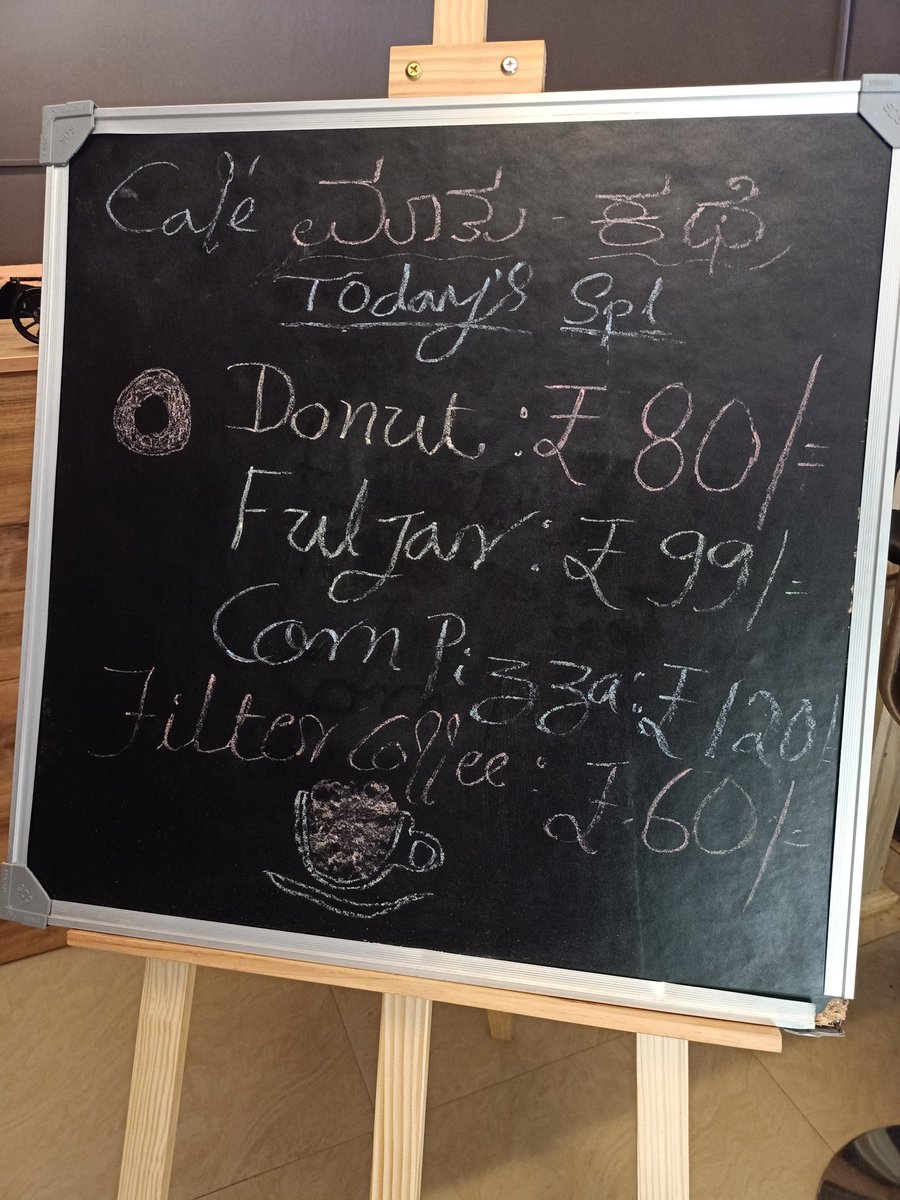 Café ಮಾತು - ಕಥೆ
Today's Spl
Donut : ₹ 80/=
Ful Jar : ₹ 99/=
Corn Pizza : ₹ 120/
Filter Coffee : ₹ 60/=